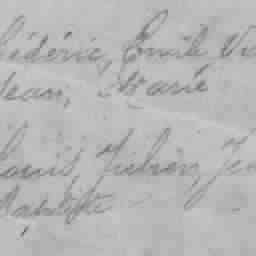 Frédéric, Emile Vi
Jean, Marie
Louis, Julien, Je
Baptiste